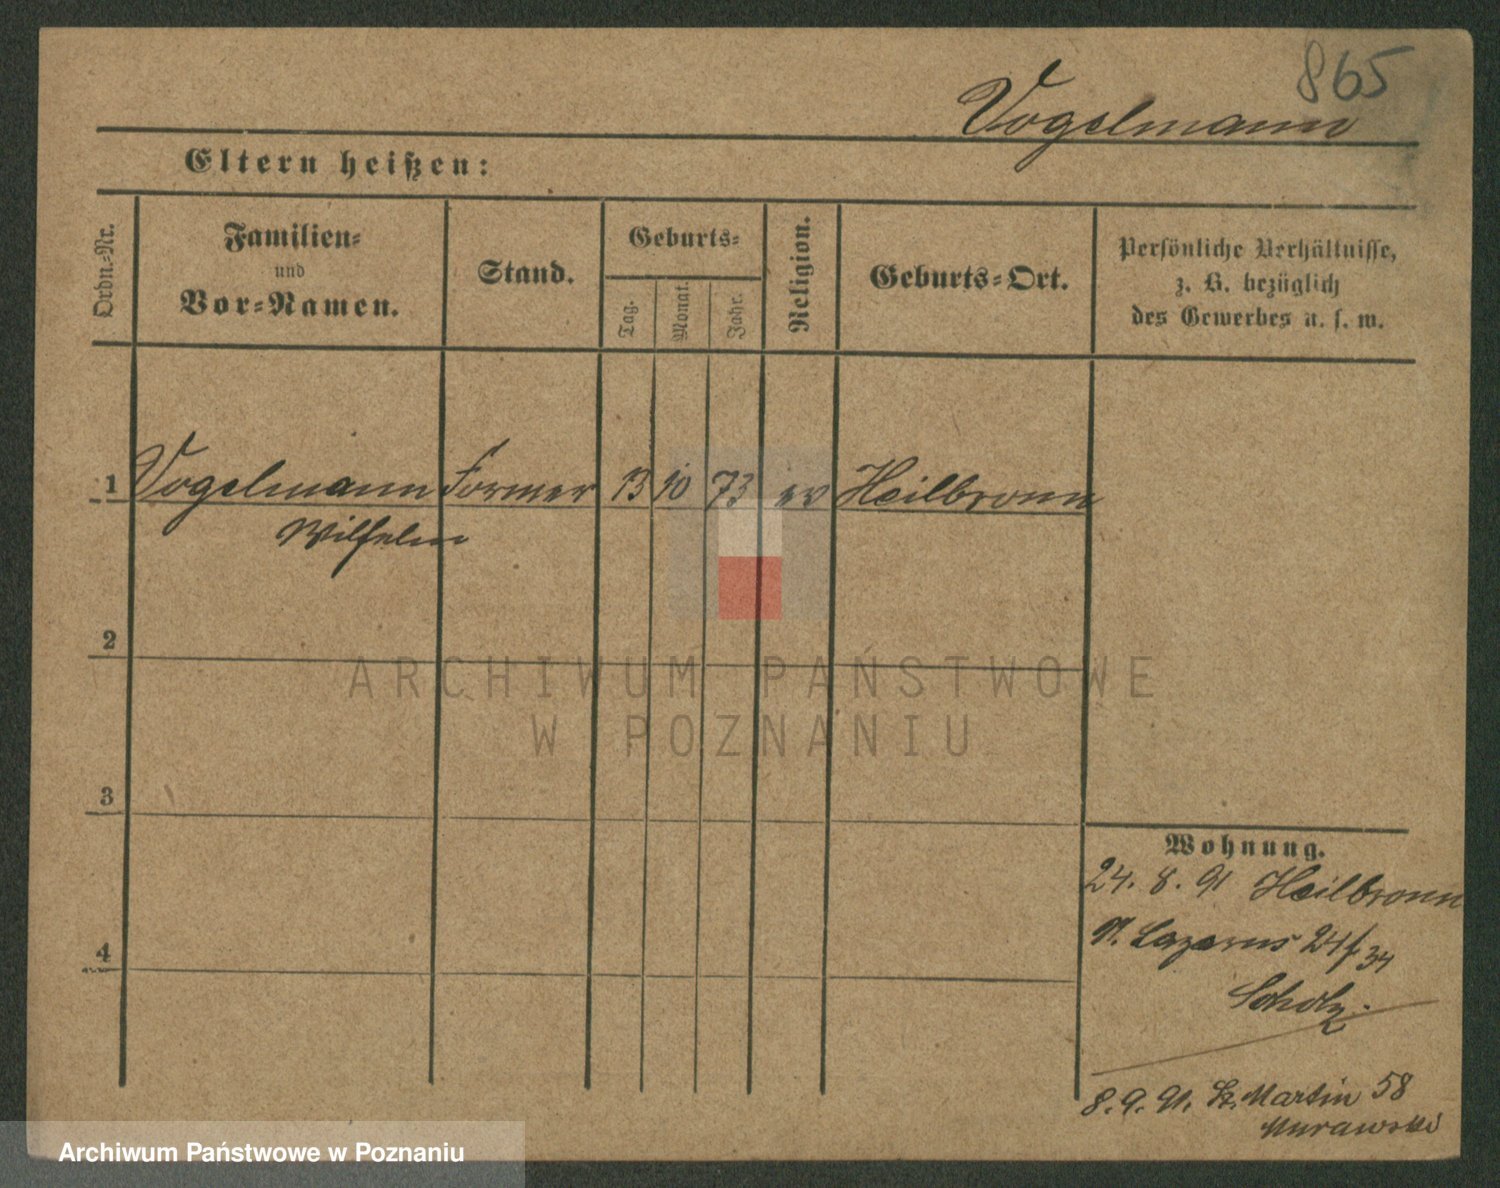 865
Vogelmann
Eltern heißen:
Ordn.-Nr.
Familien-
und
Vor-Namen.
Stand.
Geburts-
Tag.
Monat.
Jahr.
Religion.
Geburts-Ort.
Persönliche Verhältnisse,
z. B. bezüglich
des Gewerbes u. s. w.
1 Vogelmann Former 13 10 73 ev Heilbronn
Wilhelm
2
ARCHIWUM PAŃSTWOWE
W POZNANIU
3
Wohnung.
24. 8. 91 Heilbronn
St. Lazarus 34
4
Scholz.
8. 9. 91. St. Martin 58
Murawski
Archiwum Państwowe w Poznaniu